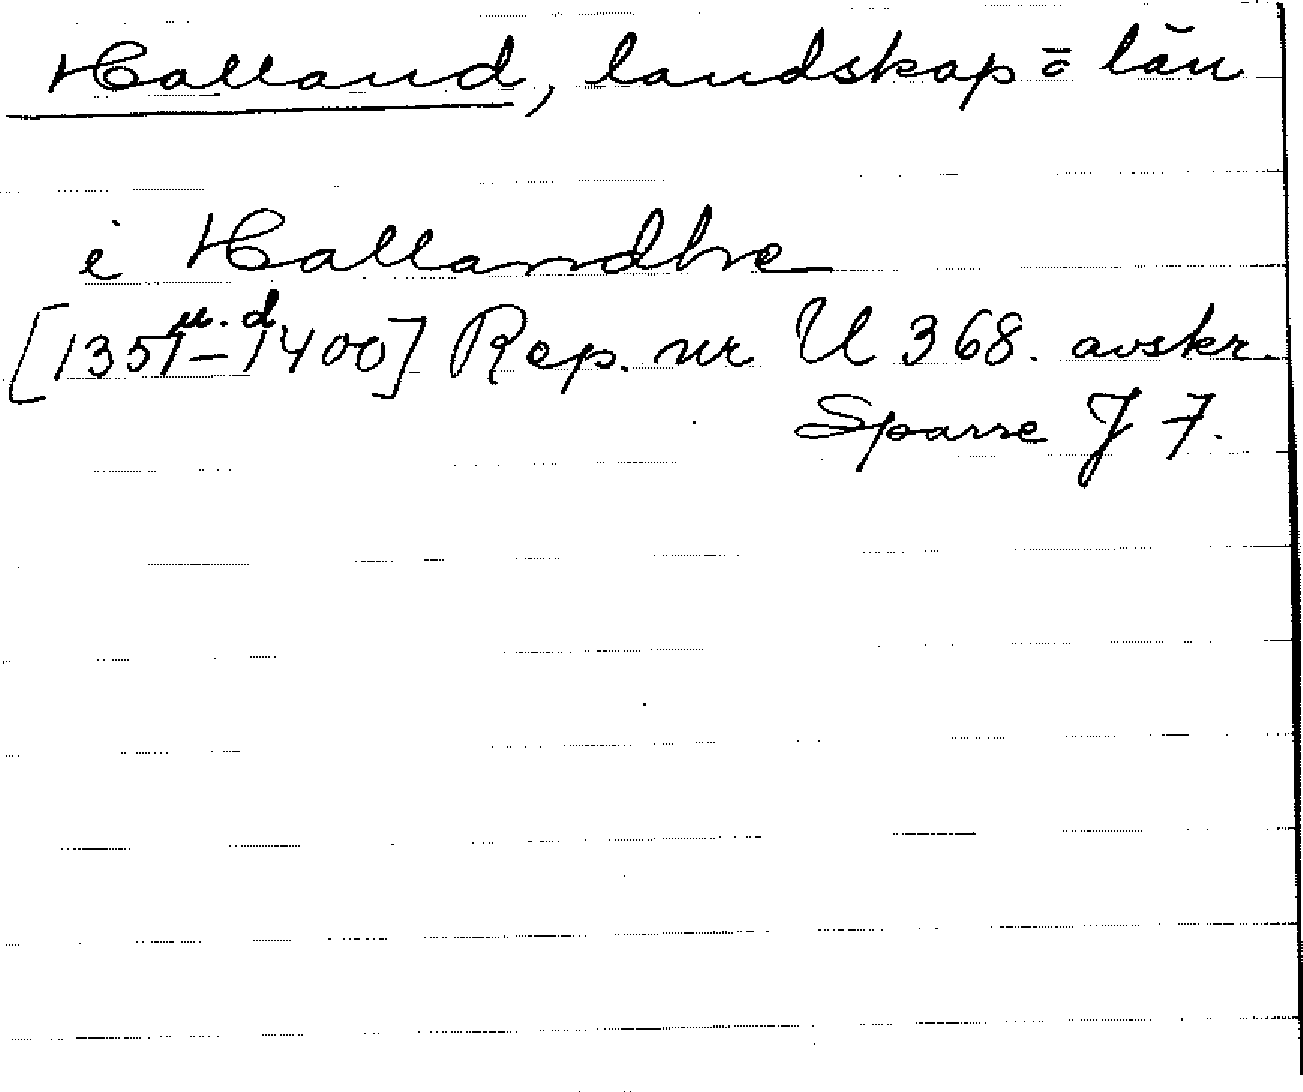 Halland, landskap ō län
i Hallandhe
[1351 u.d. – 1400] Rep. nr U 368. avskr.
Sparre J 7.